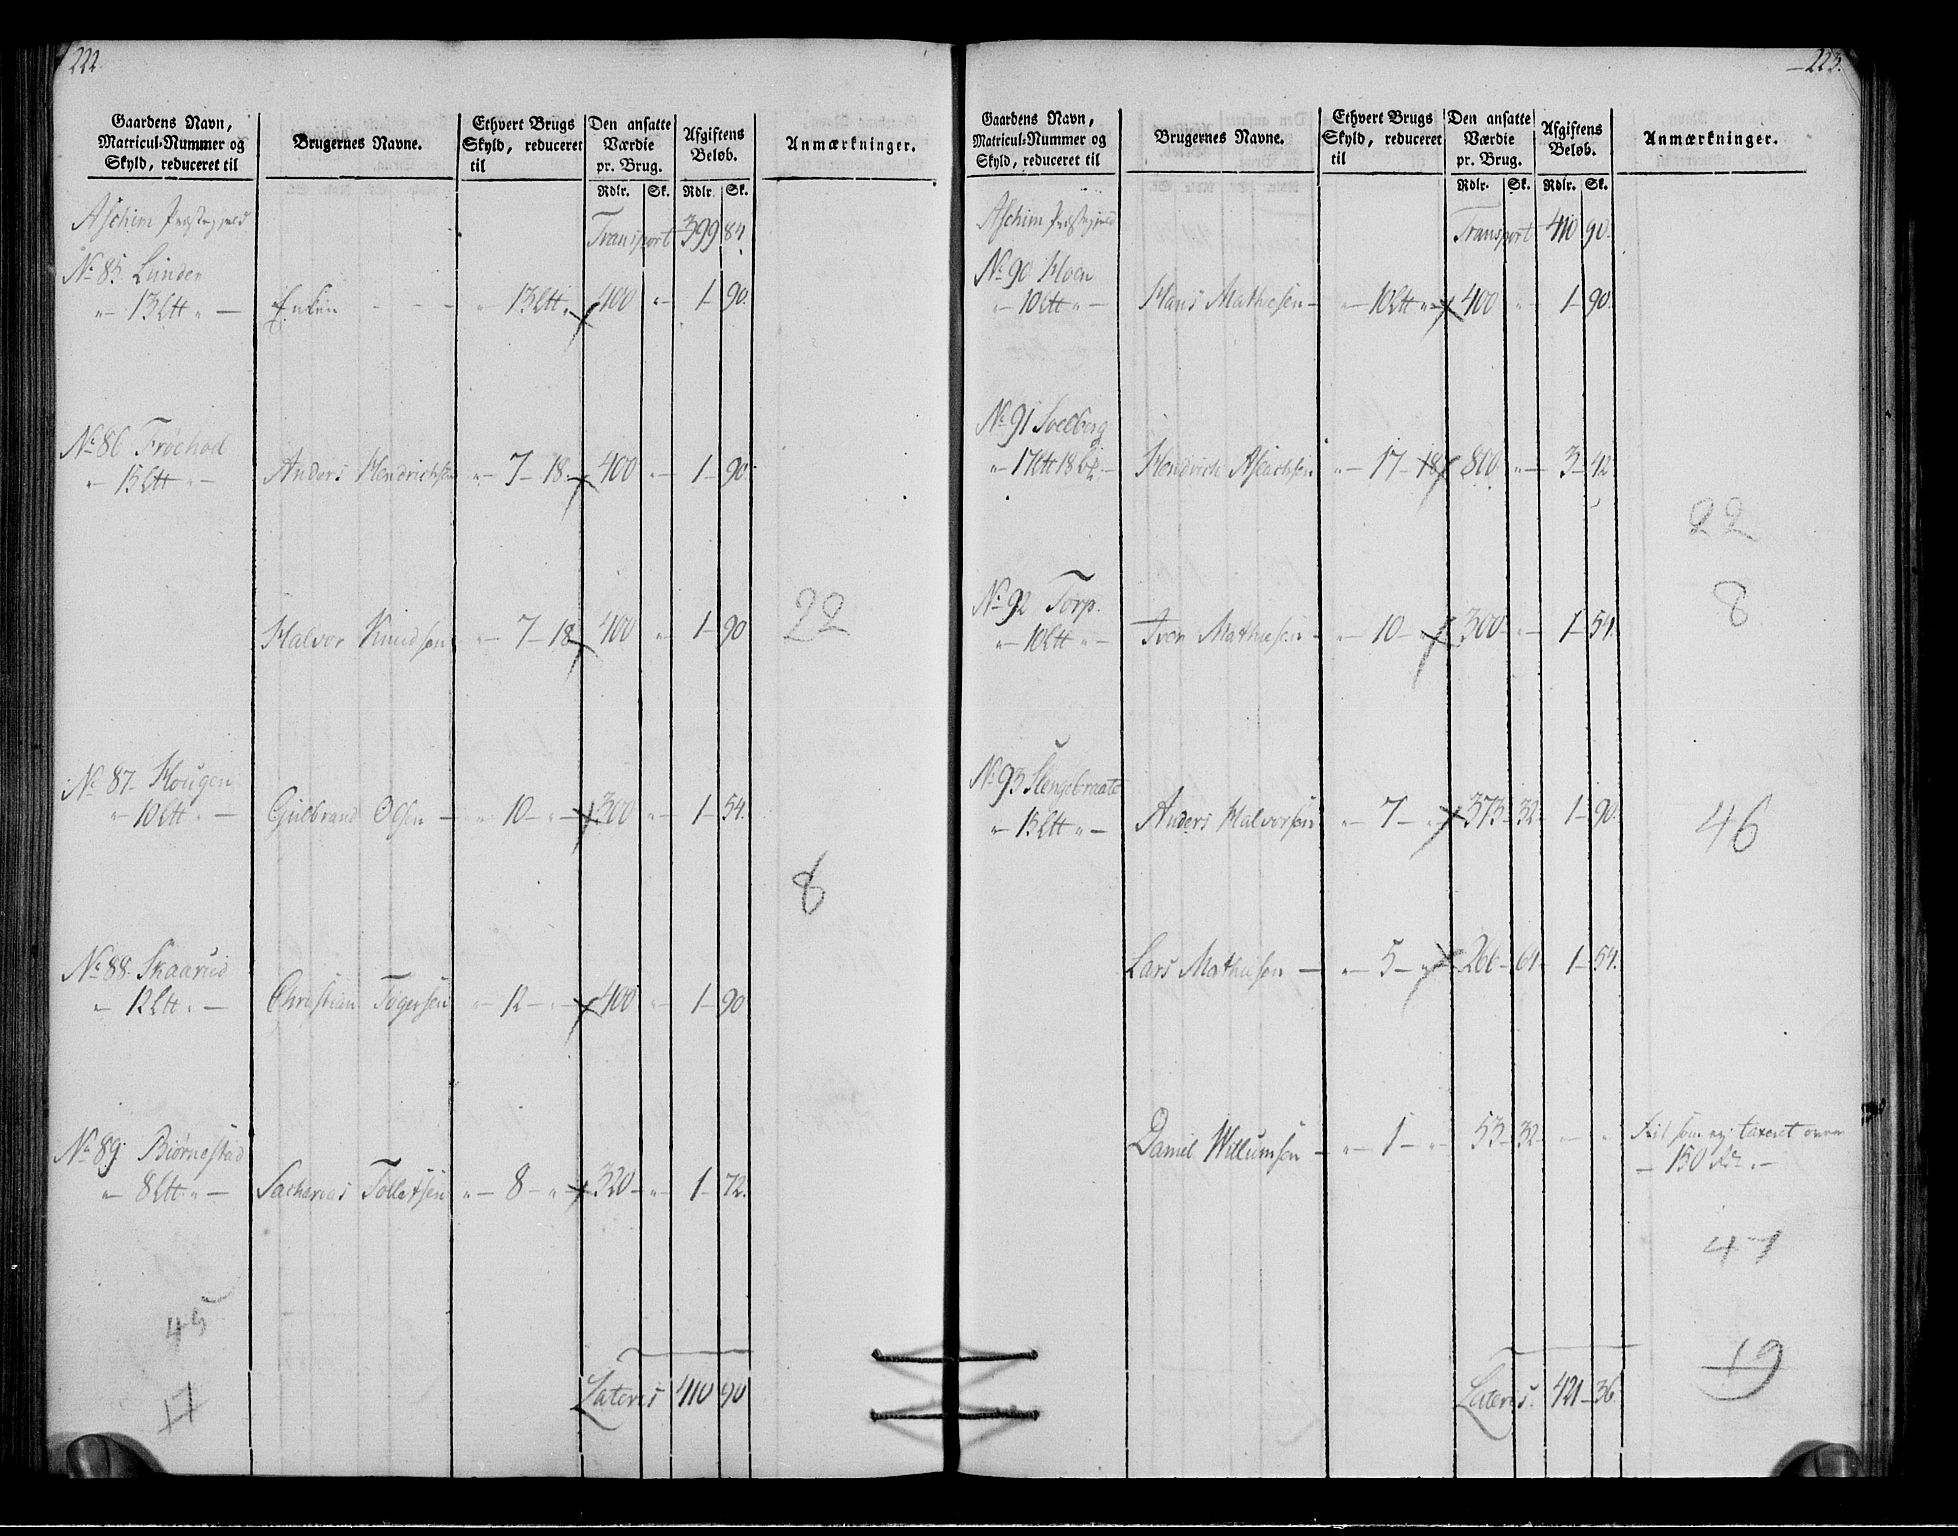 222.
Gaardens Navn, Matricul-Nummer og Skyld, reduceret til | Brugernes Navne. | Ethvert Brugs Skyld, reduceret til | Den ansatte Værdie pr. Brug. | Afgiftens Beløb. | Anmærkninger.
Rdlr. | Sk. | Rdlr. | Sk.
Aschim Præstegjeld | Transport | 399 | 84
No 85. Lunder
"– 13 Ltt " – | Enken – – – | " 13 Ltt " | 400 | " – | 1 – | 90.
No 86 Frøehod
"– 15 Ltt " – | Anders Hendrichsen | " – 7 – 18 – | 400 | " – | 1 – | 90.
Halvor Knudsen | " – 7 – 18 | 400 | " – | 1 – | 90 | 22
No 87 – Hougen
"– 10 Ltt " – | Gulbrand Olsen – | " – 10 – " – | 300 | " – | 1 – | 54.
8
No 88. Skaarud
"– 12 Ltt " – | Christian Togersen | " – 12 – " – | 400 | " – | 1 – | 90
No 89 Biørnestad
"– 8 Ltt " – | Sacharias Tollefsen | " – 8 – " – | 320 – | " – | 1 – | 72.
45
17
Lateris | 410 | 90
223.
Gaardens Navn, Matricul-Nummer og Skyld, reduceret til | Brugernes Navne. | Ethvert Brugs Skyld, reduceret til | Den ansatte Værdie pr. Brug. | Afgiftens Beløb. | Anmærkninger.
Rdlr. | Sk. | Rdlr. | Sk.
Aschim Præstegjeld | Transport | 410 | 90.
No 90 Hoen
"– 10 Ltt " – | Hans Mathiesen – | " – 10 Ltt " – | 400 | " | 1 – | 90.
No 91 Soelberg
" – 17 Ltt 18 – | Hendrich | " – 17 – 18 | 800 | " – | 3 – | 42
22
No 92 Torp.
"– 10 Ltt " – | Iver Mathiesen – | " – 10 – | 300 – | " – | 1 – | 54.
8
No 93 Slengebraate
" – 13 Ltt " – | Anders Halvorsen | " – 7 – " | 373 – | 32 – | 1 – | 90.
46
Lars Mathisen – | " – 5 – " | 266 – | 64 – | 1 – | 54.
Daniel Willumsen – | " – 1 – " | 53 – | 32 – | " – | " | Frit som ej taxeret over
– 150 Rdr. –
41
19
Lateris. | 421 – | 36.